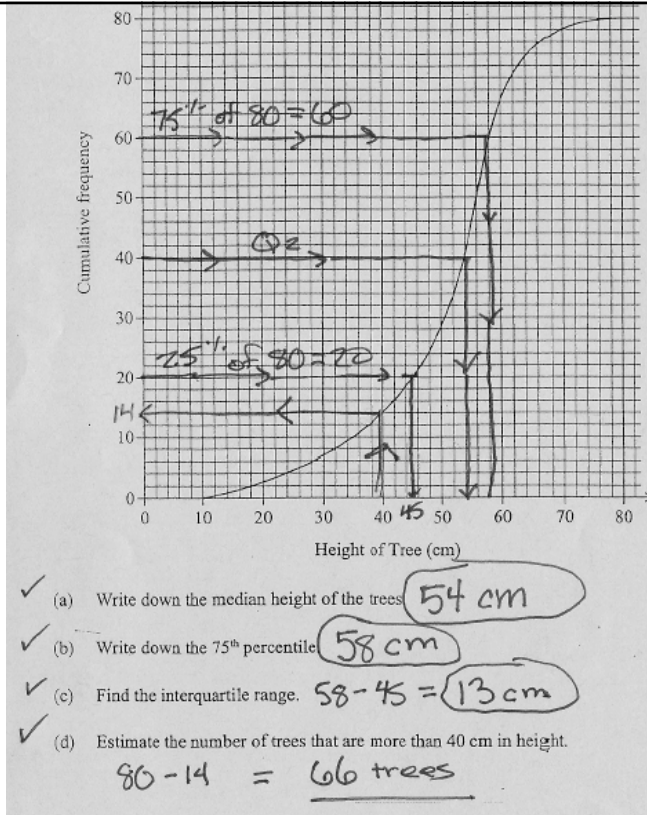 80
70
75% of 80 = 60
60
50
Cumulative frequency
Q2
40
30
25% of 80 = 20
20
14
10
0
0 10 20 30 40 45 50 60 70 80
Height of Tree (cm)
(a) Write down the median height of the trees 54 cm
(b) Write down the 75th percentile 58 cm
(c) Find the interquartile range. 58 - 45 = 13 cm
(d) Estimate the number of trees that are more than 40 cm in height.
80 - 14 = 66 trees